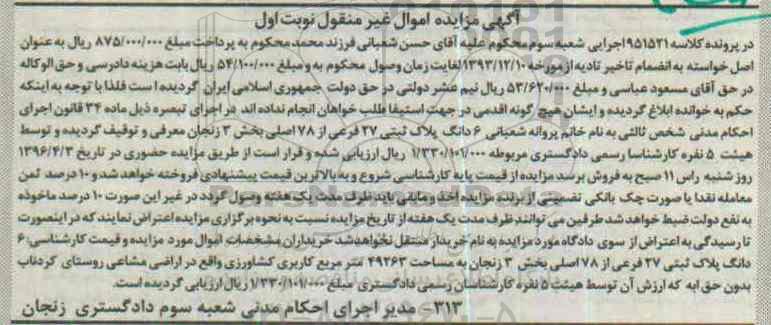 آگهی مزایده اموال غیر منقول نوبت اول
در پرونده کلاسه ۹۵۱۵۲۱ اجرایی شعبه سوم محکوم علیه آقای حسن شعبانی فرزند محمد محکوم به پرداخت مبلغ ۸۷۵/۰۰۰/۰۰۰ ریال به عنوان
اصل خواسته به انضمام تاخیر تادیه از مورخه ۱۳۹۳/۱۲/۱۰ لغایت زمان وصول محکوم به و مبلغ ۵۴/۱۰۰/۰۰۰ ریال بابت هزینه دادرسی و حق الوکاله
در حق آقای مسعود عباسی و مبلغ ۵۳/۶۲۰/۰۰۰ ریال نیم عشر دولتی در حق دولت جمهوری اسلامی ایران گردیده است فلذا با توجه به اینکه
حکم به خوانده ابلاغ گردیده و ایشان هیچ گونه اقدامی در جهت استیفا طلب خواهان انجام نداده اند در اجرای تبصره ذیل ماده ۳۴ قانون اجرای
احکام مدنی شخص ثالثی به نام خانم پروانه شعبانی ۶ دانگ پلاک ثبتی ۲۷ فرعی از ۷۸ اصلی بخش ۳ زنجان معرفی و توقیف گردیده و توسط
هیئت ۵ نفره کارشناسا رسمی دادگستری مربوطه ۱/۳۳۰/۱۰۱/۰۰۰ ریال ارزیابی شده و قرار است از طریق مزایده حضوری در تاریخ ۱۳۹۶/۴/۳
روز شنبه راس ۱۱ صبح به فروش برسد مزایده از قیمت پایه کارشناسی شروع و به بالاترین قیمت پیشنهادی فروخته خواهد شد و ۱۰ درصد ثمن
معامله نقدا یا صورت چک بانکی تضمینی از برنده مزایده اخذ و مابقی باید ظرف مدت یک هفته وصول گردد در غیر این صورت ۱۰ درصد ماخوذه
به نفع دولت ضبط خواهد شد طرفین می توانند ظرف مدت یک هفته از تاریخ مزایده نسبت به نحوه برگزاری مزایده اعتراض نمایند که در اینصورت
تا رسیدگی به اعتراض از سوی دادگاه مورد مزایده به نام خریدار منتقل نخواهد شد خریداران مشخصات اموال مورد مزایده و قیمت کارشناسی: ۶
دانگ پلاک ثبتی ۲۷ فرعی از ۷۸ اصلی بخش ۳ زنجان به مساحت ۴۹۲۶۳ متر مربع کاربری کشاورزی واقع در اراضی مشاعی روستای کردناب
بدون حق ابه که ارزش آن توسط هیئت ۵ نفره کارشناسان رسمی دادگستری مبلغ ۱/۳۳۰/۱۰۱/۰۰۰ ریال ارزیابی گردیده است.
۳۱۳- مدیر اجرای احکام مدنی شعبه سوم دادگستری زنجان